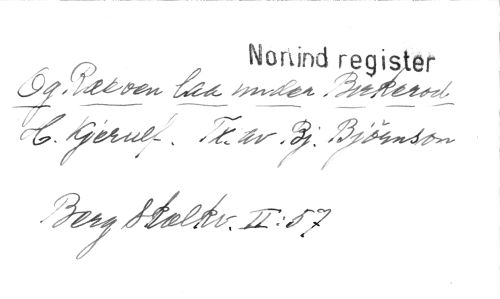 Norsind register
Og Ræven laa under Birkerod
H. Kjerulf. Tx. av Bj. Bjørnson
Berg Skolkv. II: 57